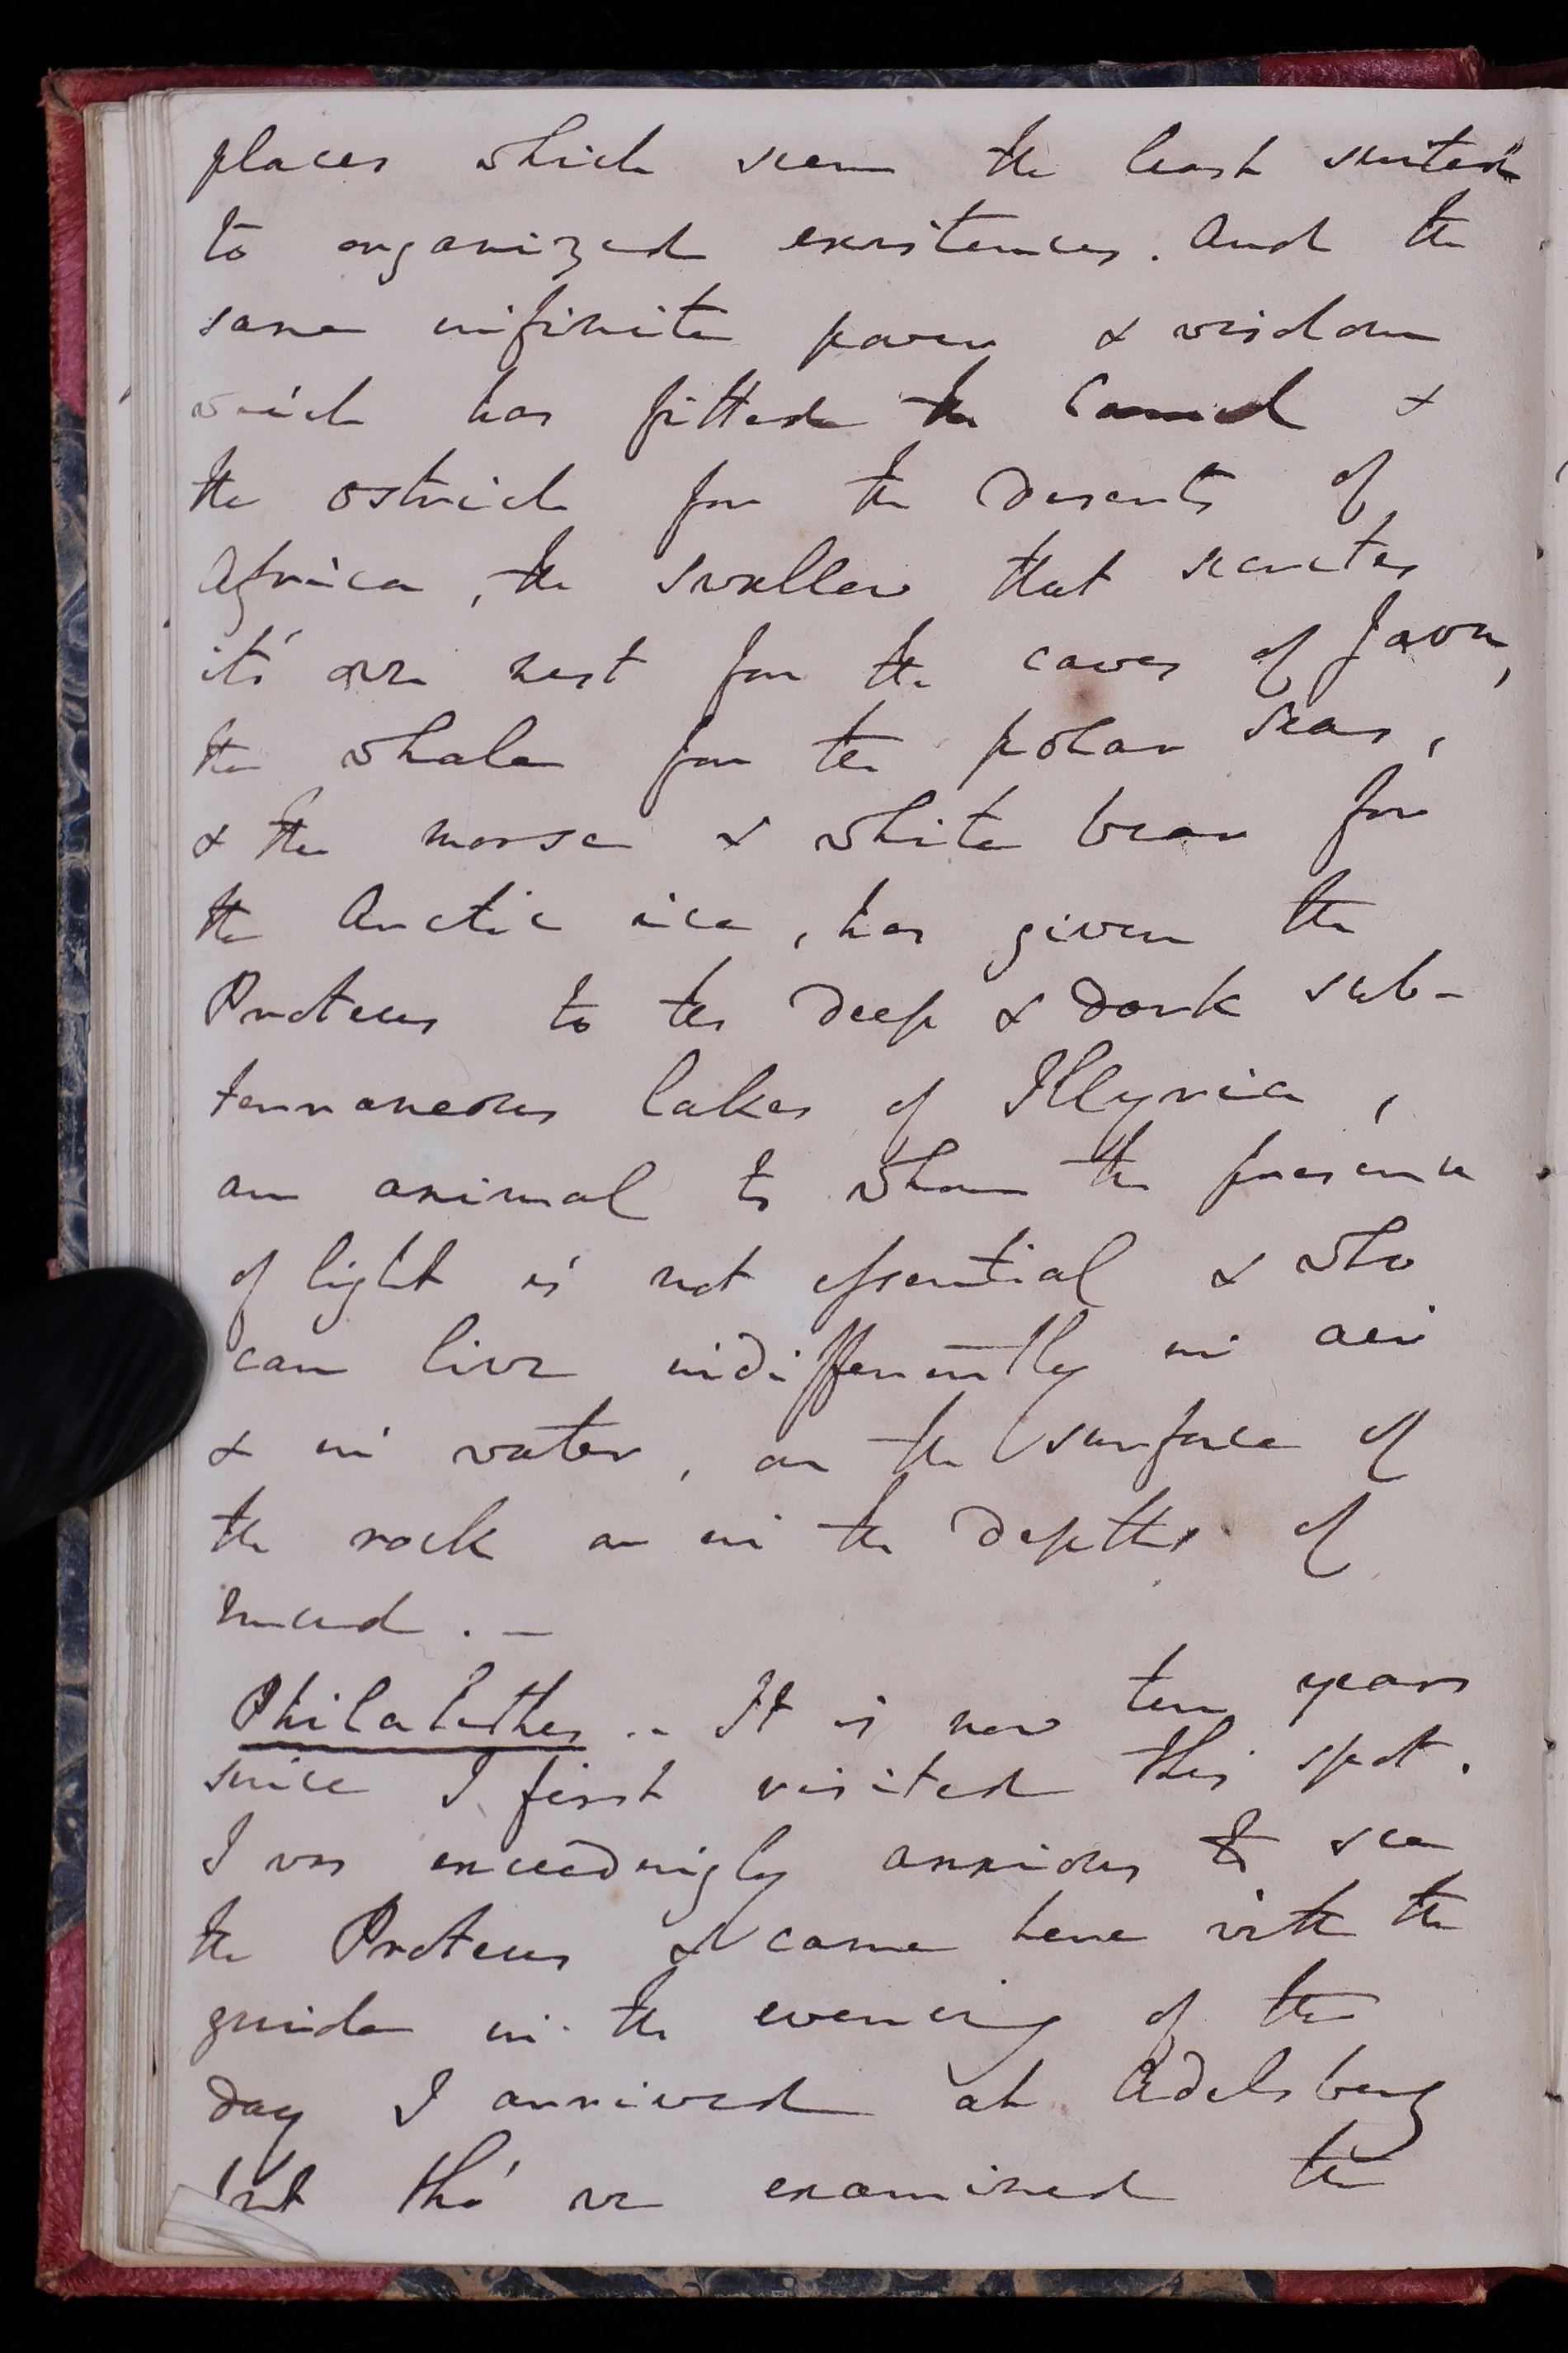 places which seem the least suited
to organized existences. And the
same infinite power & wisdom
which has fitted the Camel &
the ostrich for the Deserts of
Africa, the swallow that secretes
it's own nest for the caves of Java,
the whale for the polar seas,
& the morse & white bear for
the Arctic ice, has given the
Proteus to the Deep & Dark sub-
terraneous lakes of Illyria,
an animal to whom the presence
of light is not essential & who
can live indifferently in air
& in water, on the surface of
the rock or in the Depths of
mud. —
Philalethes .. It is now ten years
since I first visited this spot.
I was exceedingly anxious to see
the Proteus & came here with the
guide in the evening of the
Day I arrived at Adelsberg
but tho' we examined the